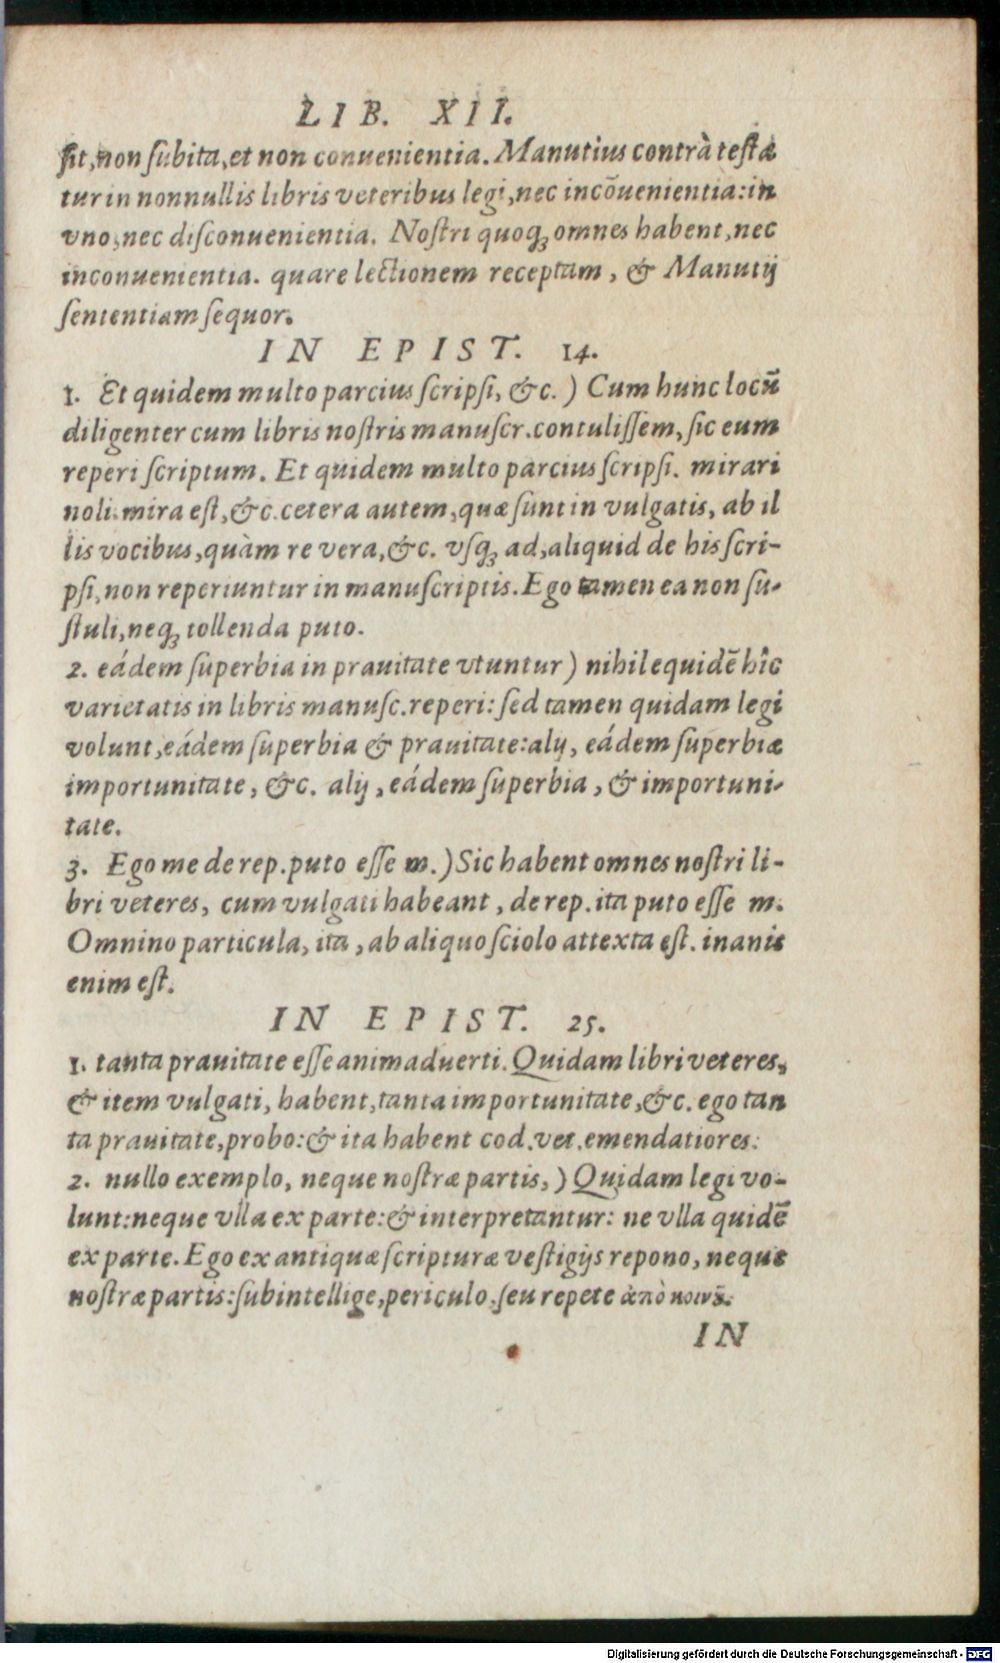 LIB. XII.
ſit, non ſubita, et non conuenientia. Manutius contrà teſta
tur in nonnullis libris veteribus legi, nec incōuenientia: in
vno, nec diſconuenientia. Noſtri quoq; omnes habent, nec
inconuenientia. quare lectionem receptam, & Manutij
ſententiam ſequor.
IN EPIST. 14.
1. Et quidem multo parcius ſcripſi, &c.) Cum hunc locū
diligenter cum libris noſtris manuſcr. contuliſſem, ſic eum
reperi ſcriptum. Et quidem multo parcius ſcripſi. mirari
noli. mira eſt, &c. cetera autem, quæ ſunt in vulgatis, ab il
lis vocibus, quàm re vera, &c. vſq; ad, aliquid de his ſcri-
pſi, non reperiuntur in manuſcriptis. Ego tamen ea non ſu-
ſtuli, neq; tollenda puto.
2. eádem ſuperbia in prauitate vtuntur) nihil equidē hîc
varietatis in libris manuſc. reperi: ſed tamen quidam legi
volunt, eádem ſuperbia & prauitate: alij, eádem ſuperbiæ
importunitate, &c. alij, eádem ſuperbia, & importuni-
tate.
3. Ego me de rep. puto eſſe m.) Sic habent omnes noſtri li-
bri veteres, cum vulgati habeant, de rep. ita puto eſſe m.
Omnino particula, ita, ab aliquo ſciolo attexta eſt. inanis
enim eſt.
IN EPIST. 25.
1. tanta prauitate eſſe animaduerti. Quidam libri veteres,
& item vulgati, habent, tanta importunitate, &c. ego tan
ta prauitate, probo: & ita habent cod. vet. emendatiores.
2. nullo exemplo, neque noſtræ partis,) Quidam legi vo-
lunt: neque vlla ex parte: & interpretantur: ne vlla quidē
ex parte. Ego ex antiquæ ſcripturæ veſtigijs repono, neque
noſtræ partis: ſubintellige, periculo, ſeu repete ἀπὸ κοινȣ̃.
IN
Digitalisierung gefördert durch die Deutsche Forschungsgemeinschaft - DFG